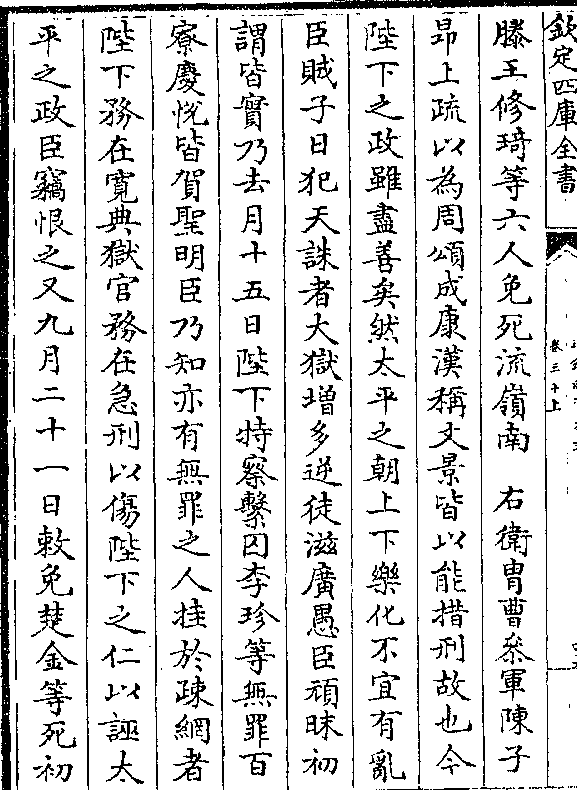 欽定四庫全書
卷三十上
滕王修琦等六人免死流嶺南　右衛胄曹叅軍陳子
昂上疏以為周頌成康漢稱文景皆以能措刑故也今
陛下之政雖盡善矣然太平之朝上下樂化不宜有亂
臣賊子日犯天誅者大獄增多逆徒滋廣愚臣頑昧初
謂皆實乃去月十五日陛下特察繫囚李珍等無罪百
寮慶悅皆賀聖明臣乃知亦有無罪之人挂於疎網者
陛下務在寛典獄官務在急刑以傷陛下之仁以誣太
平之政臣竊恨之又九月二十一日敕免楚金等死初